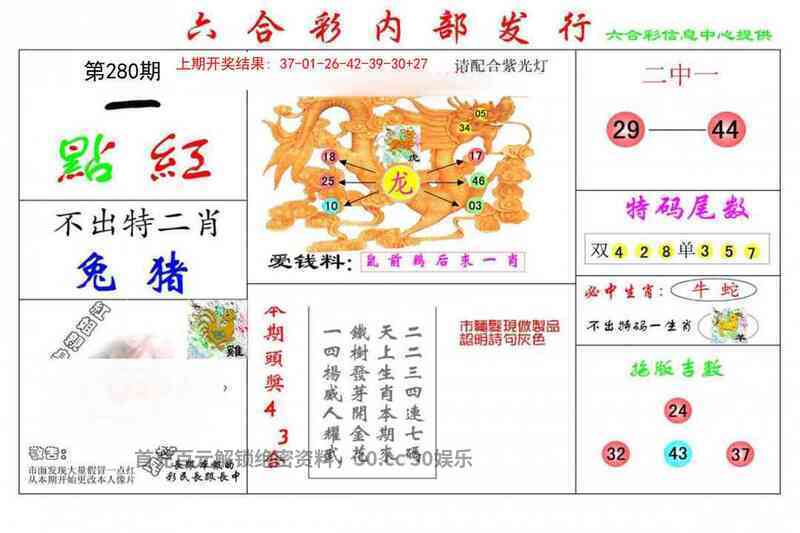 六合彩内部发行
六合彩信息中心提供
第280期
上期开奖结果：37-01-26-42-39-30+27
请配合紫光灯
一
點 紅
不出特二肖
兔 猪
05
34
虎
18
17
25
龙
46
10
03
爱钱料：
鼠前鸡后来一肖
二中一
29
44
特码尾数
双 4 2 8 单 3 5 7
必中生肖：牛 蛇
不出特码一生肖
羊
拖版吉数
24
32
43
37
雞
本期頭獎
4 3合
二二三四連七碼
天上生肖本期來
鐵樹發芽開金花
一四揚威人耀武
認明詩句灰色
敬告：
市面发现大量假冒一点红
从本期开始更改本人像片
彩民長跟長中
首充百元解锁绝密资料，30.cc 30娱乐